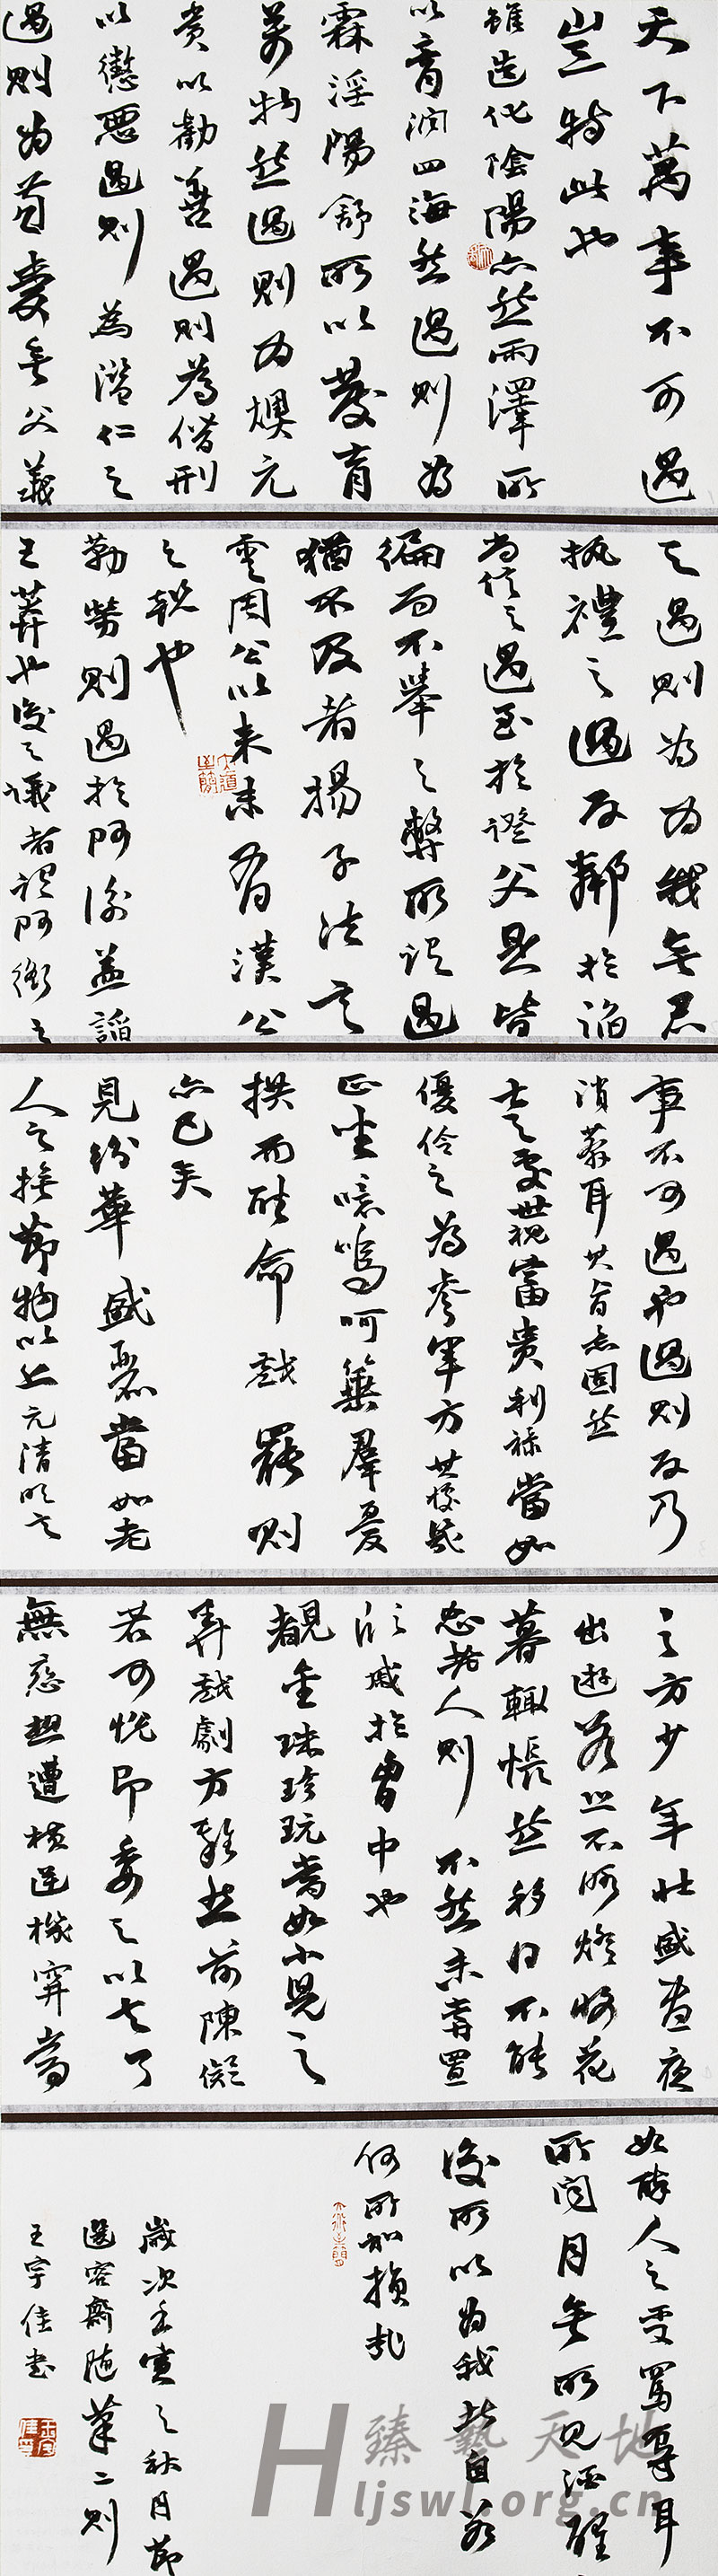 天下萬事不可過
豈特此也
雖造化陰陽亦然雨澤所
以膏潤四海然過則為
霖淫陽舒所以發育
萬物然過則為燠亢
賞以勸善過則為僭刑
以懲惡過則為濫仁之
過則為兼愛無父義
之過則為為我無君
執禮之過反鄰於諂
尚信之過至於證父是皆
偏而不舉之弊所謂過
猶不及者揚子法言
云周公以來未有漢公
之懿也
勤勞則過於阿衡蓋諂
王莽也後之議者謂阿衡之
事不可過也過則反乃
誚莽耳其旨意固然
士之處世視富貴利祿當如
優伶之為參軍方其據几
正坐噫嗚訶箠群優
拱而聽命戲罷則
亦已矣
見紛華盛麗當如老
人之撫節物以上元清明言
之方少年壯盛晝夜
出遊若恐不暇燈收花
暮輒悵然移日不能
忘老人則不然未嘗置
欣戚於胸中也
覩金珠珍玩當如小兒之
弄戲劇方雜然前陳疑
若可悅即委之以去了
無戀想遭橫逆機穽當
如醉人之受罵辱耳
無所聞目無所見酒醒之
後所以為我者自若
何所加損哉
歲次壬寅之秋月節
選容齋隨筆二則
王宇佳書
臻藝天地
Hljswl.org.cn